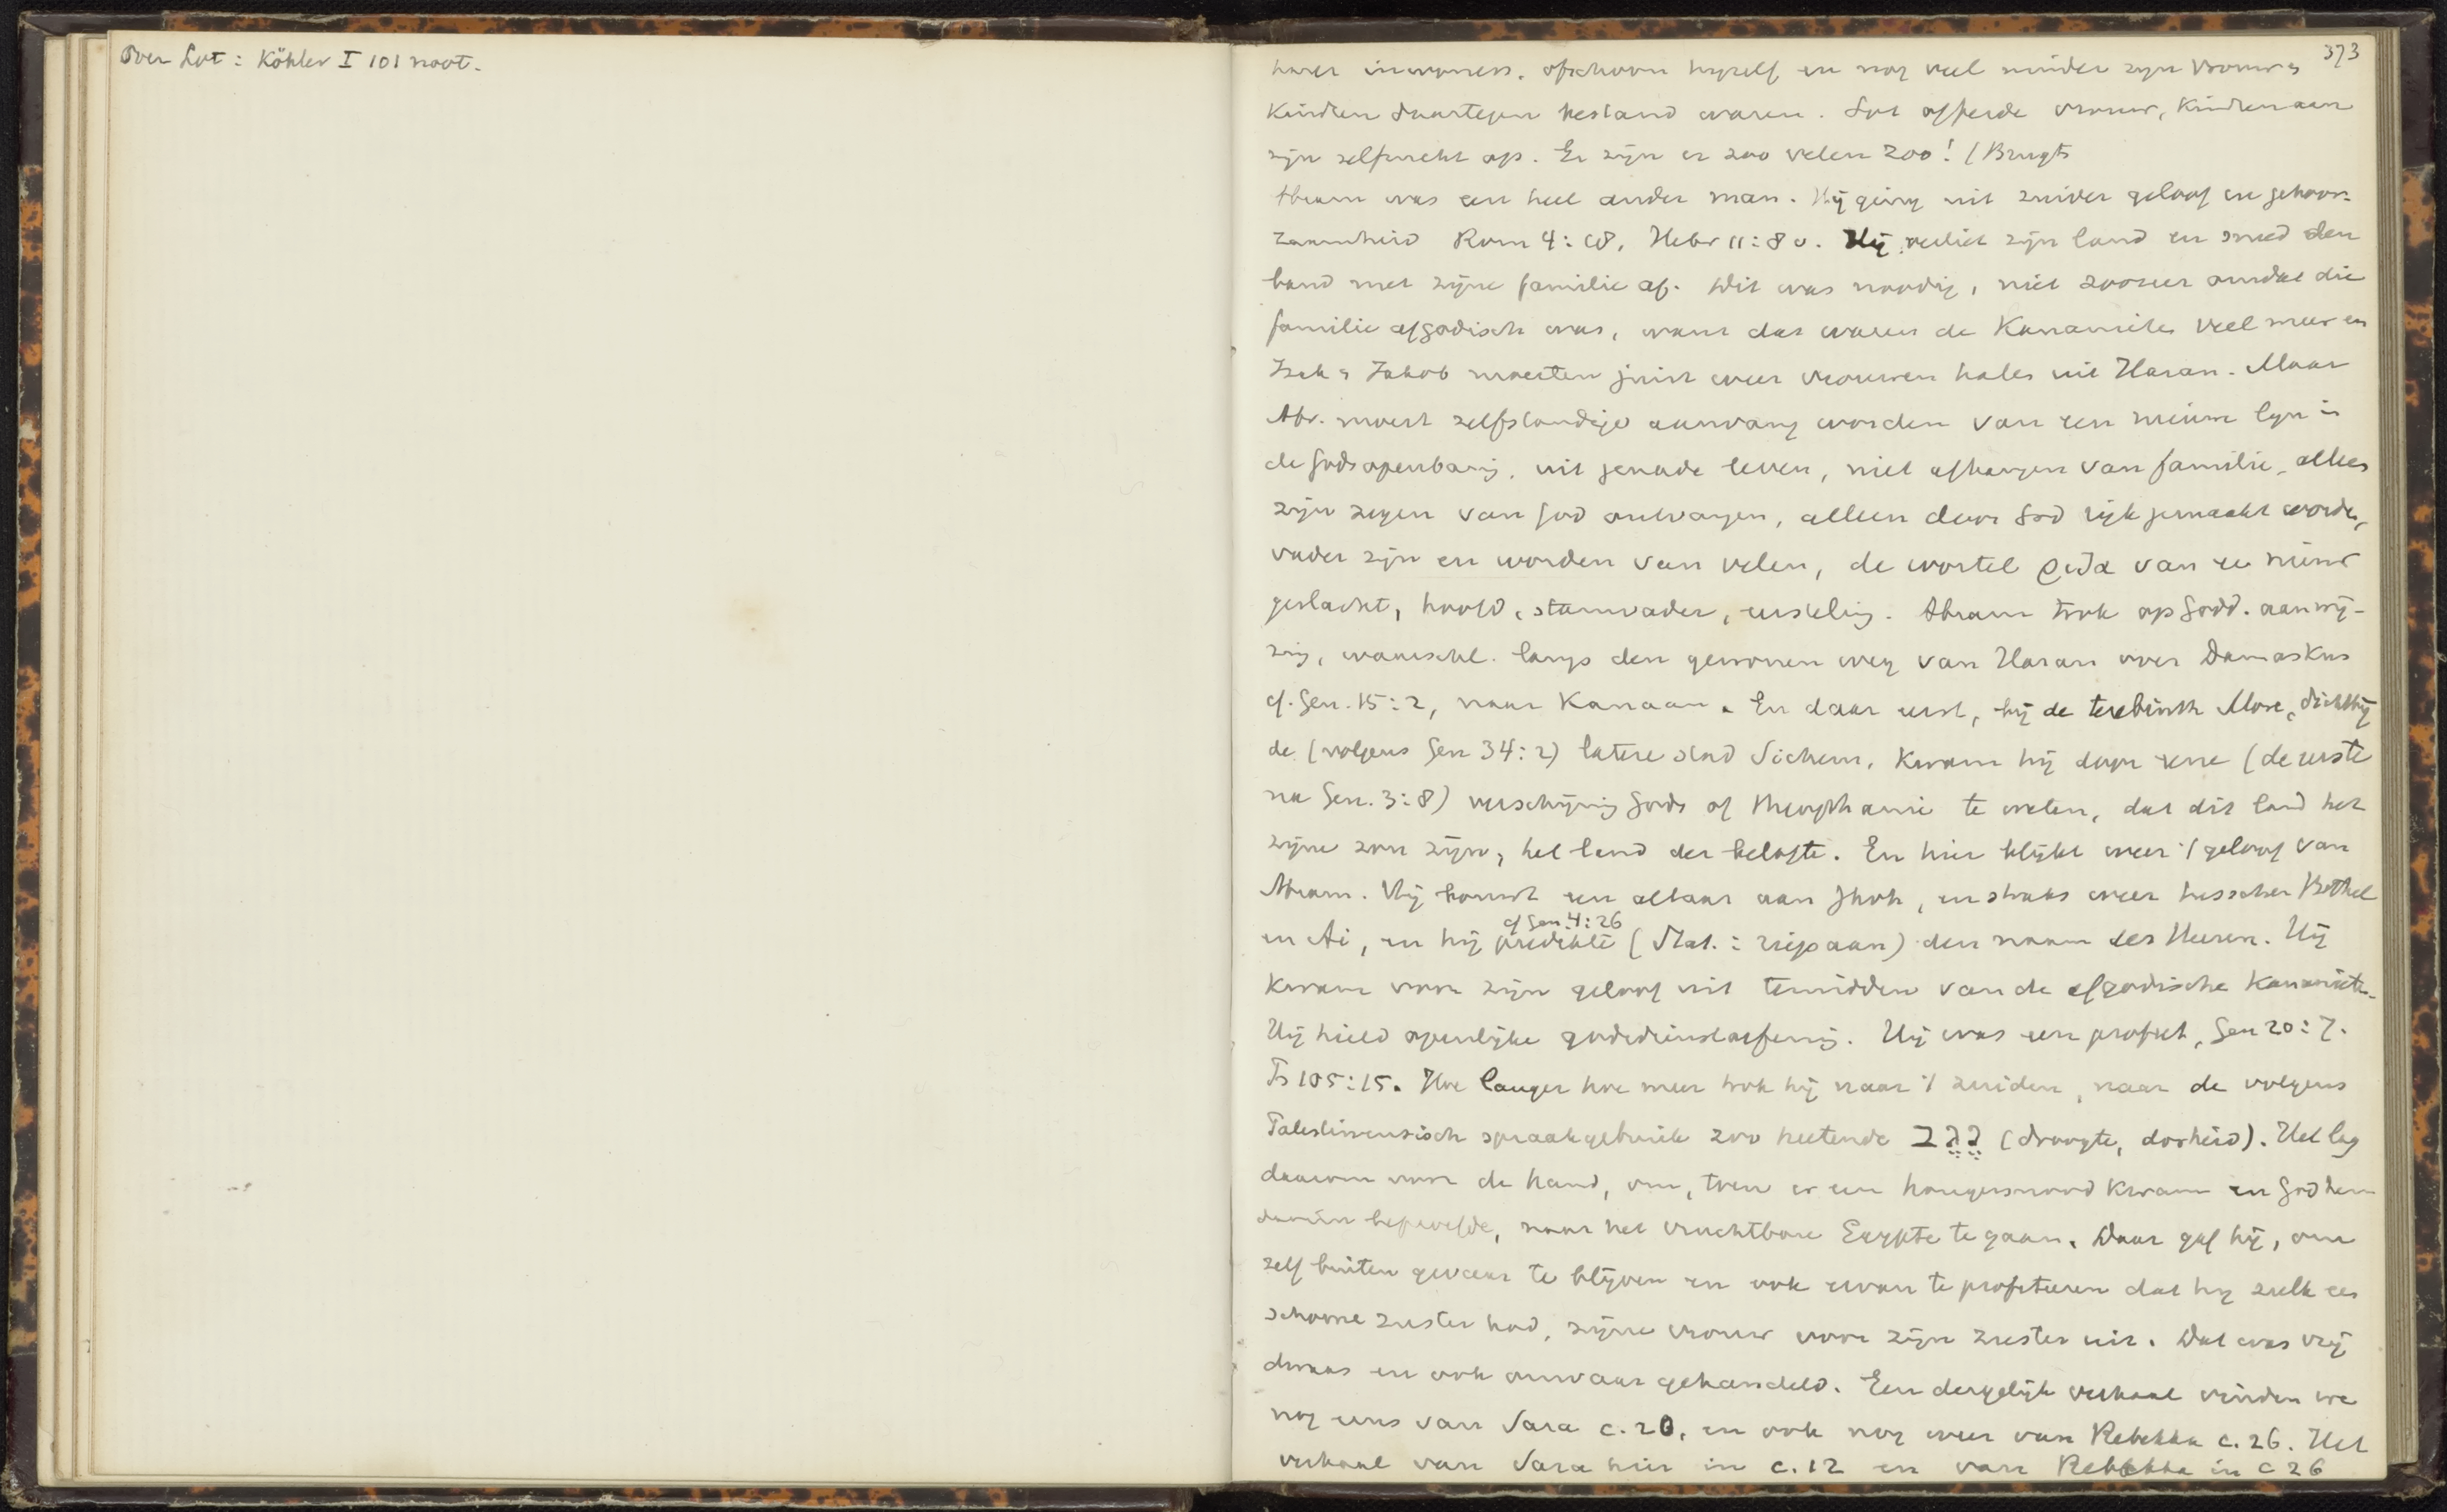 Over Lot: Köhler I 101 noot.
373
harer inwoners. ofschoon hijzelf en nog veel minder zijn vrouw &
Kinderen daartegen bestand waren. Lot offerde vrouw, Kinderen aan
zijn zelfzucht op. Er zijn er zoo velen zoo! (Brugts
Abram was een heel ander man. Hij ging uit zuiver geloof en gehoor-
zaamheid Rom 4:18, Hebr 11:8v. Hij verliet zijn land en sneed den
band met zijne familie af. Dit was noodig, niet zoozeer omdat die
familie afgodisch was, want dat waren de Kanaanieten veel meer en
Izak & Jakob moesten juist weer vrouwen halen uit Haran. Maar
Abr. moest zelfstandige aanvang worden van een nieuwe lijn in
de Godsopenbaring, uit genade leven, niet afhangen van familie, alleen
zijn zegen van God ontvangen, alleen door God rijk gemaakt worden,
vader zijn en worden van velen, de wortel ῥιζα van een nieuw
geslacht, hoofd, stamvader, eersteling. Abram trok op Godd. aanwij-
zing, waarschl. langs den gewonen weg van Haran over Damaskus
cf. Gen. 15:2, naar Kanaan. En daar eerst, bij de terebinth More, dichtbij
de (volgens Gen 34:2) latere stad Sichem, kwam hij door eene (de eerste
na Gen. 3:8) verschijning Gods of theophanie te weten, dat dit land het
zijne zou zijn, het land der belofte. En hier blijkt weer 't geloof van
Abram. Hij bouwt een altaar aan Jhvh, en straks weer tusschen Bethel
cf Gen. 4:26
en Ai, en hij predikte (Stat.: riep aan) den naam des Heeren. Hij
kwam voor zijn geloof uit temidden van de afgodische Kanaanieten.
Hij hield openlijke godsdienstoefening. Hij was een profeet, Gen 20:7.
Ps 105:15. Hoe langer hoe meer trok hij naar 't zuiden, naar de volgens
Palestinensisch spraakgebruik zoo heetende נֶגֶב (droogte, dorheid). Het lag
daarom voor de hand, om, toen er een hongersnood kwam en God hem
daarin beproefde, naar het vruchtbare Egypte te gaan. Daar gaf hij, om
zelf buiten gevaar te blijven en ook ervan te profiteeren dat hij zulk een
schoone zuster had, zijne vrouw voor zijn zuster uit. Dat was vrij
dwaas en ook onwaar gehandeld. Een dergelijk verhaal vinden we
nog eens van Sara c. 20, en ook nog weer van Rebekka c. 26. Het
verhaal van Sara hier in c. 12 en van Rebekka in c 26